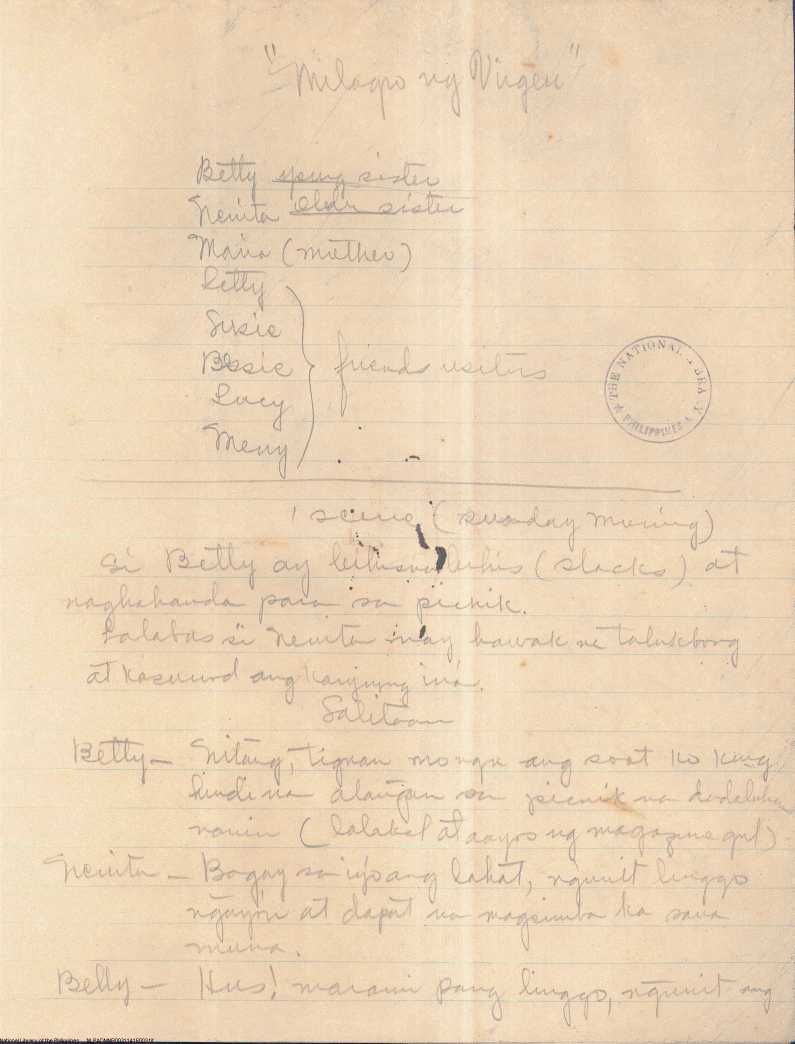 "Milagro ng Virgen"
Betty young sister
Nenita older sister
Maria (mother)
Letty
Susie
Bessie
Lucy
Meny
friends visitors
THE NATIONAL LIBRARY
PHILIPPINES
1 scene (sunday morning)
Si Betty ay (slacks) at
naghahanda para sa picnik.
Lalabas si Nenita may hawak na talukbong
at kasunod ang kaniyang ina.
Salitaan
Betty— Nitang, tignan mo nga ang soot ko kung
hindi na alangan sa picnik na
namin (lalakad at aayos ng magazine)
Nenita — Bagay sa iyo ang lahat, ngunit linggo
ngayon at dapat na magsimba ka sana
muna.
Betty — Hus! marami pang linggo, ngunit ang
National Library of the Philippines